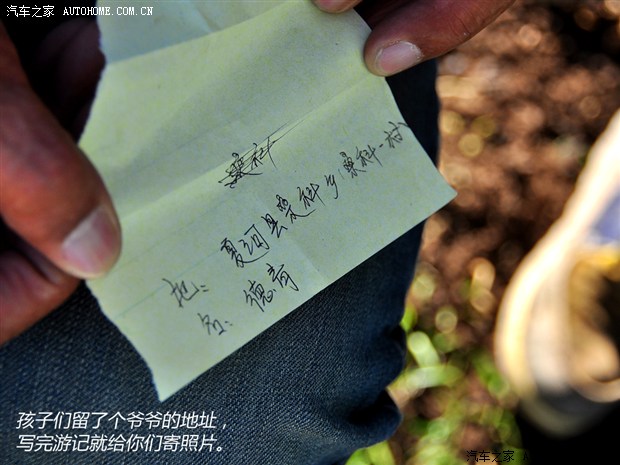 汽车之家 AUTOHOME.COM.CN
桑科
地:夏河县桑科乡桑科一村
名:德育
孩子们留了个爷爷的地址，
写完游记就给你们寄照片。
汽车之家